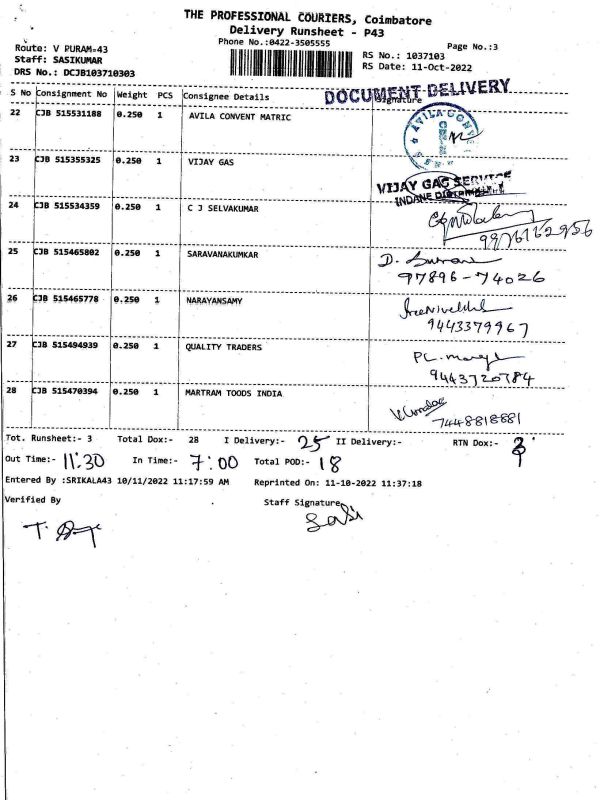 THE PROFESSIONAL COURIERS, Coimbatore
Delivery Runsheet - P43
Phone No.:0422-3505555
Page No.:3
Route: V PURAM-43
Staff: SASIKUMAR
DRS No.: DCJB103710303
RS No.: 1037103
RS Date: 11-Oct-2022
DOCUMENT DELIVERY
S No Consignment No Weight PCS Consignee Details Signature
22 CJB 515531188 0.250 1 AVILA CONVENT MATRIC
AVILA CONVENT
23 CJB 515355325 0.250 1 VIJAY GAS
VIJAY GAS SERVICE
INDANE
24 CJB 515534359 0.250 1 C J SELVAKUMAR
9976162956
25 CJB 515465802 0.250 1 SARAVANAKUMKAR
D.
97896-74026
26 CJB 515465778 0.250 1 NARAYANSAMY
9443379967
27 CJB 515494939 0.250 1 QUALITY TRADERS
PL.
9443720784
28 CJB 515470394 0.250 1 MARTRAM TOODS INDIA
7448818881
Tot. Runsheet:- 3 Total Dox:- 28 I Delivery:- 25 II Delivery:- RTN Dox:- 3
Out Time:- 11:30 In Time:- 7:00 Total POD:- 18
Entered By :SRIKALA43 10/11/2022 11:17:59 AM Reprinted On: 11-10-2022 11:37:18
Verified By Staff Signature
T. Sasi